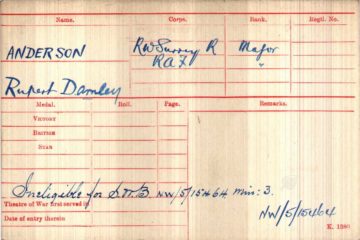 Name. Corps. Rank. Regtl. No.
ANDERSON R W Surrey R Major
Rupert Darnley R A F "
Medal. Roll. Page. Remarks.
VICTORY
BRITISH
STAR
Ineligible for S.W.B NW/5/15464 Min: 3.
Theatre of War first served in
Date of entry therein
NW/5/15464
K. 1380